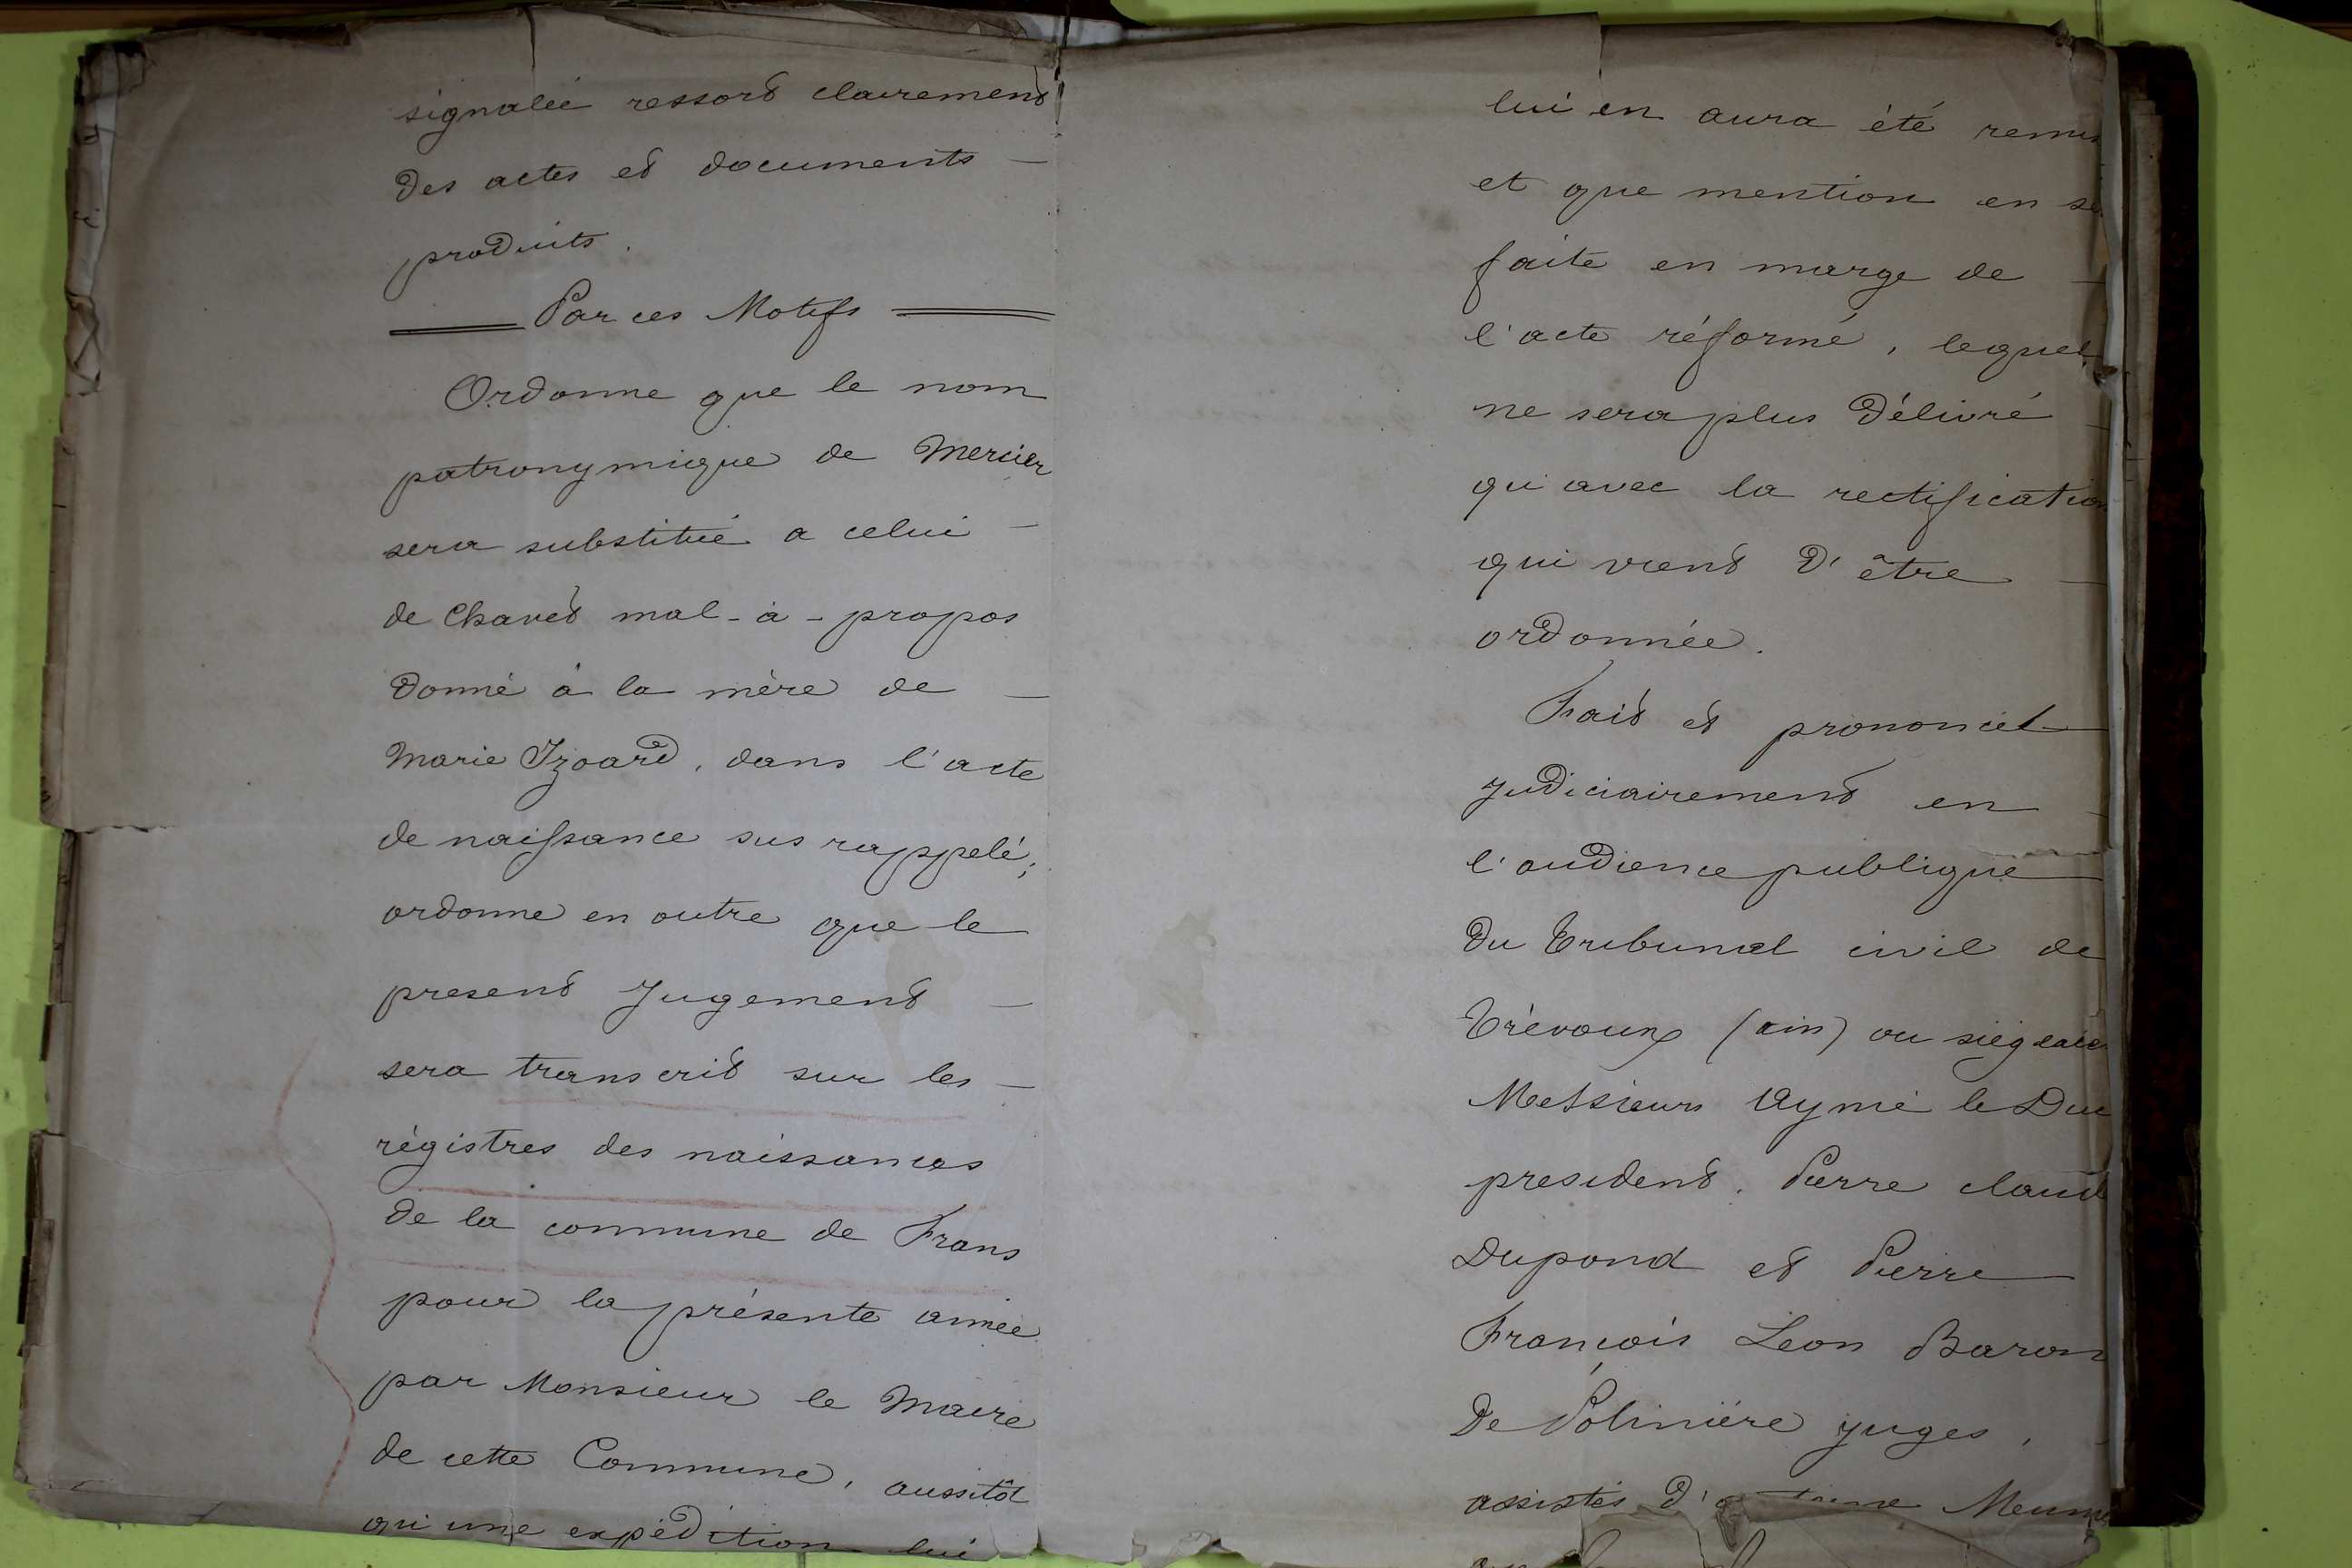 signalée ressort clairement
des actes et documents —
produits.
Par ces Motifs
Ordonne que le nom
patronymique de Mercier
sera substitué a celui —
de Chavet mal-à-propos
donné à la mère de —
Marie Izoard, dans l'acte
de naissance sus rappelé;
ordonne en outre que le
present Jugement —
sera transcrit sur les —
régistres des naissances
de la commune de Frans
pour la présente année
par Monsieur le Maire
de cette Commune, aussitôt
qu'une expédition lui
lui en aura été
et que mention en
faite en marge de —
l'acte réformé, lequel
ne sera plus délivré —
qu'avec la rectification
qui vient d'être —
ordonnée.
Fait et prononcé
judiciairement en —
l'audience publique
du Tribunal civil de
Trévoux (ain) ou
Messieurs Aymé le Duc
president, Pierre
Dupond et Pierre
François Leon Baron
De Polinière juges,
assistés